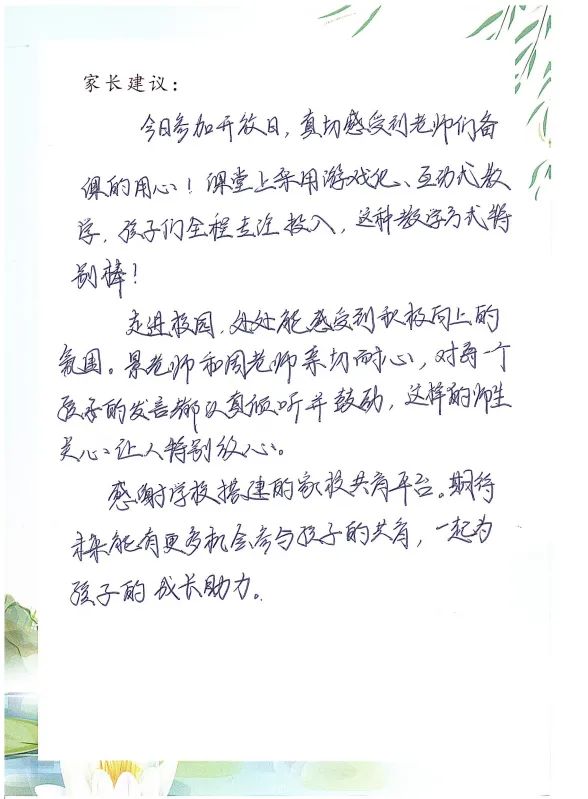 家长建议：
今日参加开放日，真切感受到老师们备
课的用心！课堂上采用游戏化、互动式教
学，孩子们全程专注投入，这种教学方式特
别棒！
走进校园，处处能感受到积极向上的
氛围。景老师和周老师亲切耐心，对每一个
孩子的发言都认真倾听并鼓励，这样的师生
关心让人特别放心。
感谢学校搭建的家校共育平台。期待
未来能有更多机会参与孩子的共育，一起为
孩子的成长助力。